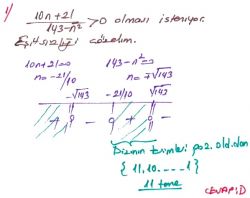 1/
10n+21
143-n² >0 olması isteniyor.
Eşitsizliği çözelim.
10n+21=0 143-n²=0
n=-21/10 n=∓√143
-√143 -21/10 √143
+ - + -
Dizinin terimleri poz. old. dan
{11,10.....1}
11 tane
CEVAP: D